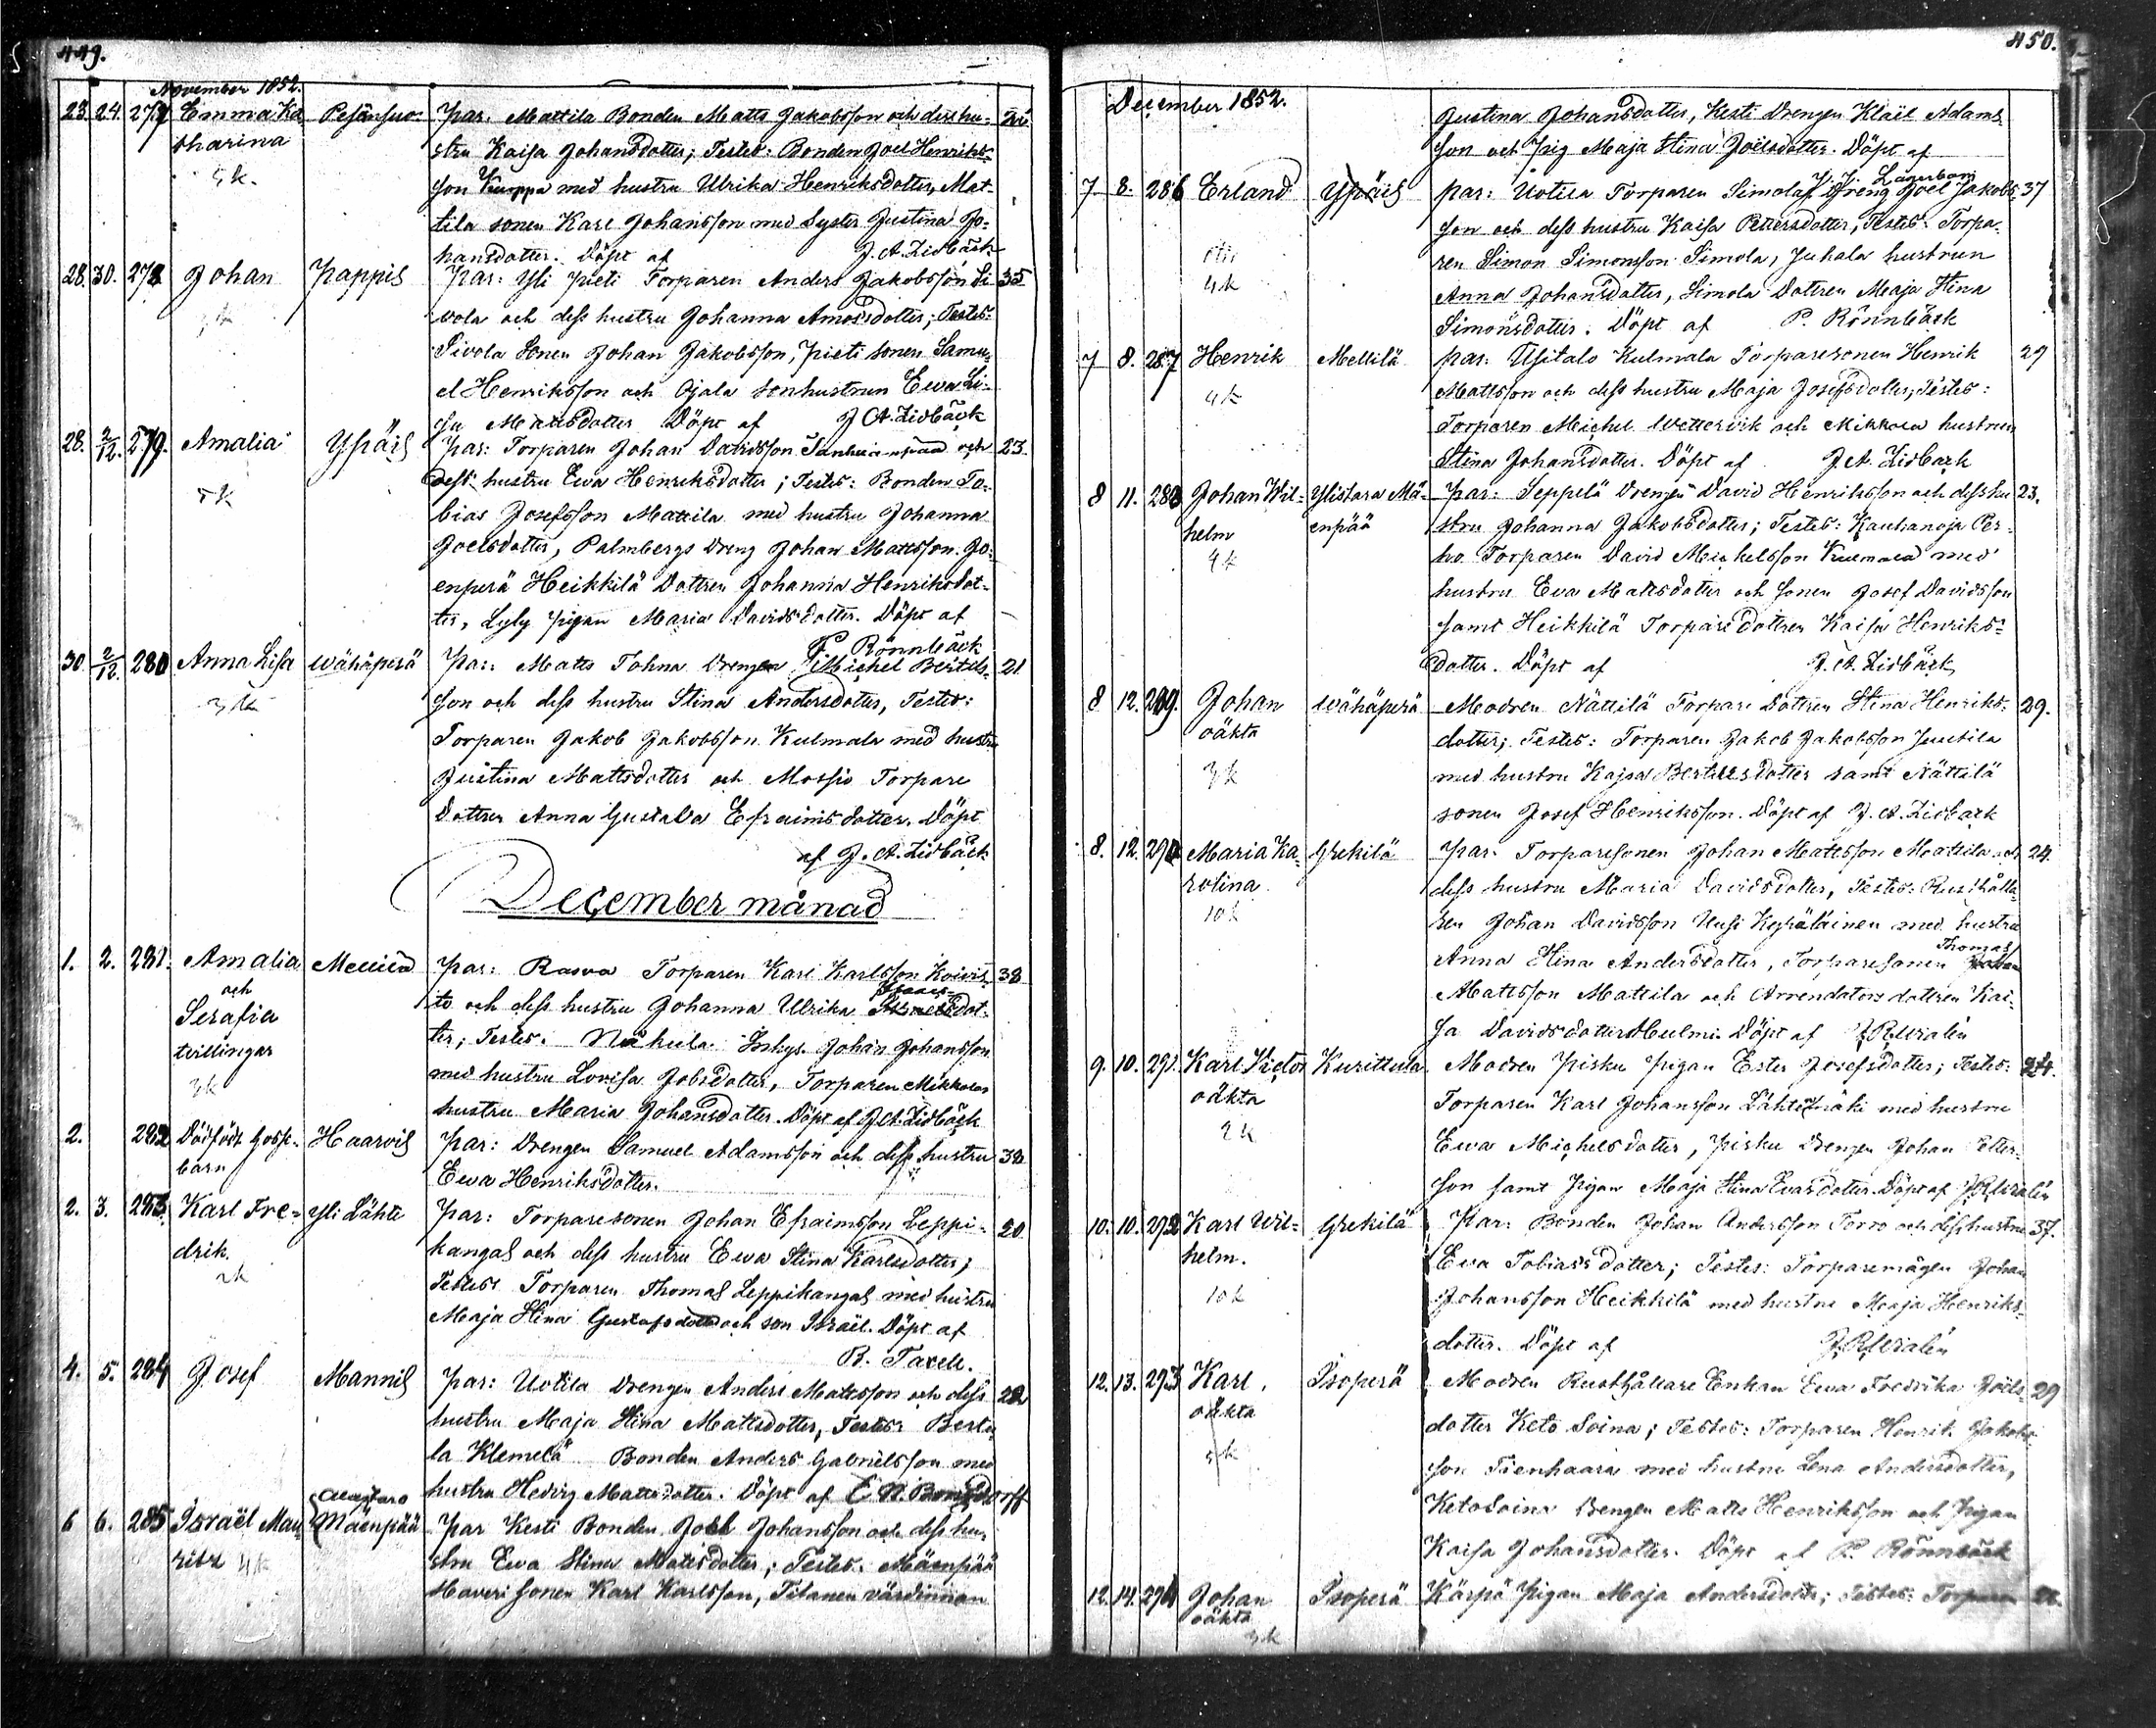 449.
November 1852.
23. 24. 277 Emma Ka Pesänsuo Par. Mattila Bonden Matts Jakobsson och dess hu-
tharina stru Kaisa Johansdotter; Testes: Bonden Joel Henriks-
5k. son Kuoppa med hustru Ulrika Henriksdotter, Mat-
tila sonen Karl Johansson med Syster Justina Jo-
hansdotter. Döpt af J. A. Lidbäck
28. 30. 278 Johan Pappis Par: Yli Pieti Torparen Anders Jakobsson Si 35
vola och dess hustru Johanna Amosdotter; Testes:
Sivola Sonen Johan Jakobsson, Pieti sonen Samu-
el Henriksson och Ojala sonhustrun Ewa Li-
sa Mattsdotter Döpt af J A. Lidbäck
28. 2/12. 279. Amalia Ypäis Par: Torparen Johan Davidsson och 23.
5k dess hustru Ewa Henriksdotter; Testes: Bonden To-
bias Josefsson Mattila med hustru Johanna
Joelsdotter, Palmbergs Dreng Johan Mattsson. Jo-
enperä Heikkilä Dottren Johanna Henriksdot-
ter, Lyly pigan Maria Davidsdotter. Döpt af
P. Rönnbäck
30. 2/12. 280 Anna Lisa Wähäperä Par: Matts Tohna Drengen Michel Bertils- 21
3k son och dess hustru Stina Andersdotter, Testes:
Torparen Jakob Jakobsson Kulmala med hustru
Justina Mattsdotter och Mossio Torpare
Dottren Anna Gustava Efraimsdotter. Döpt
af J. A. Lidbäck
December månad
1. 2. 281. Amalia Mellilä Par: Rasva Torparen Karl Karlsson Koivis- 38
och to och dess hustru Johanna Ulrika Isaacsdot-
Serafia ter; Testes: Inhys. Johan Johansson
tvillingar med hustru Lovisa Jobsdotter, Torparen Mikkolas
3k hustru Maria Johansdotter. Döpt af J. A. Lidbäck
2. 282 Dödfödt Goss- Haarois Par: Drengen Samuel Adamsson och dess hustru 38
barn Ewa Henriksdotter.
2. 3. 283. Karl Fre- Yli Lähte Par: Torparesonen Johan Efraimsson Leppi- 20
drik kangas och dess hustru Ewa Stina Karlsdotter;
2k Testes: Torparen Thomas Leppikangas med hustru
Maja Stina Gustafsdotter och son Israel. Döpt af
B. Taxell.
4. 5. 284 Josef Mannis Par: Uotila Drengen Anders Mattsson och dess 22
hustru Maja Stina Mattsdotter, Testes: Bertu-
la Klemelä Bonden Anders Gabrielsson med
hustru Hedvig Mattsdotter. Döpt af
6 6. 285 Israël Mau- Alastaro Mäenpää Par Kesti Bonden Joel Johansson och dess hu-
ritz 4k stru Ewa Stina Mattsdotter; Testes: Mäenpää
Haveri Sonen Karl Karlsson, Titanen värdinnan
450.
December 1852.
Justina Johansdotter, Kesti Drengen Kläil Adams
son och Pig Maja Stina Joëlsdotter. Döpt af
J. J. Lagerbom
7 8. 286 Erland Ypäis Par: Uotila Torparen Simolas Dreng Joel Jakobs- 37
son och dess hustru Kaisa Pettersdotter, Testes: Torpa-
4k ren Simon Simonsson Simola, Juhala hustrun
Anna Johansdotter, Simola Dottren Maja Stina
Simonsdotter. Döpt af P. Rönnbäck
7 8. 287 Henrik Mellilä Par: Usitalo Kulmala Torparesonen Henrik 29
4k Mattsson och dess hustru Maja Josefsdotter; Testes:
Torparen Michel Wettervik och Mikkola hustrun
Stina Johansdotter. Döpt af J. A. Lidbäck
8 11. 288 Johan Wil- Ylistaro Mä- Par: Seppelä Drengen David Henriksson och dess hu 23.
helm enpää stru Johanna Jakobsdotter; Testes: Kauhanoja Per-
4k ho Torparen David Michelsson Kulmala med
hustru Eva Mattsdotter och Sonen Josef Davidsson
samt Heikkilä Torpare Dottren Kaisa Henriks-
dotter. Döpt af J. A. Lidbäck
8 12. 289. Johan Wähäperä Modren Nättilä Torpare Dottren Stina Henriks- 29.
oäkta dotter; Testes: Torparen Jakob Jakobsson Juutila
3k med hustru Kajsa Bertilsdotter samt Nättilä
sonen Josef Henriksson. Döpt af J. A. Lidbäck
8. 12. 290 Maria Ka- Grekilä Par: Torparesonen Johan Mattsson Mattila och 24.
rolina dess hustru Maria Davidsdotter, Testes: Rusthålla-
10k ren Johan Davidsson Uusi Kyhäläinen med hustru
Anna Stina Andersdotter, Torparesonen Thomas
Mattsson Mattila och Arrendators dottren Kai-
sa Davidsdotter Hulmi. Döpt af J. R. Uvalén
9. 10. 291. Karl Victor Kurittula Modren Pisku Pigan Ester Josefsdotter; Testes: 24.
oäkta Torparen Karl Johansson Lähteenmäki med hustru
2k Ewa Michelsdotter, Pisku Drengen Johan Petter-
son samt Pigan Maja Stina Evasdotter. Döpt af J. R. Uvalén
10. 10. 292 Karl Wil- Grekilä Par: Bonden Johan Andersson Torro och dess hustru 37.
helm. Eva Tobiasdotter; Testes: Torparemågen Johan
10k Johansson Heikkilä med hustru Maja Henriks-
dotter. Döpt af J. R. Uvalén
12. 13. 293 Karl Isoperä Modren Rusthållare Enkan Ewa Fredrika Joëls- 29
oäkta dotter Keto Soina; Testes: Torparen Henrik Jakobs-
5k son Tienhaara med hustru Lena Andersdotter,
Ketosoina Drengen Matts Henriksson och Pigan
Kaisa Johansdotter. Döpt af P. Rönnbäck
12. 14. 294 Johan Isoperä Kärpä Pigan Maja Andersdotter; Testes: Torparen
oäkta
3k